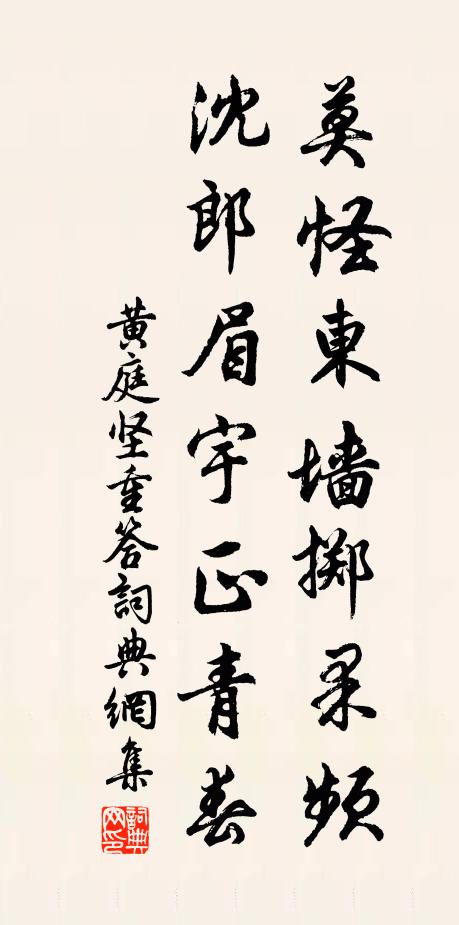 莫怪東墙掷果頻
沈郎眉宇正青春
黄庭坚重答詞典網集
詞典网印